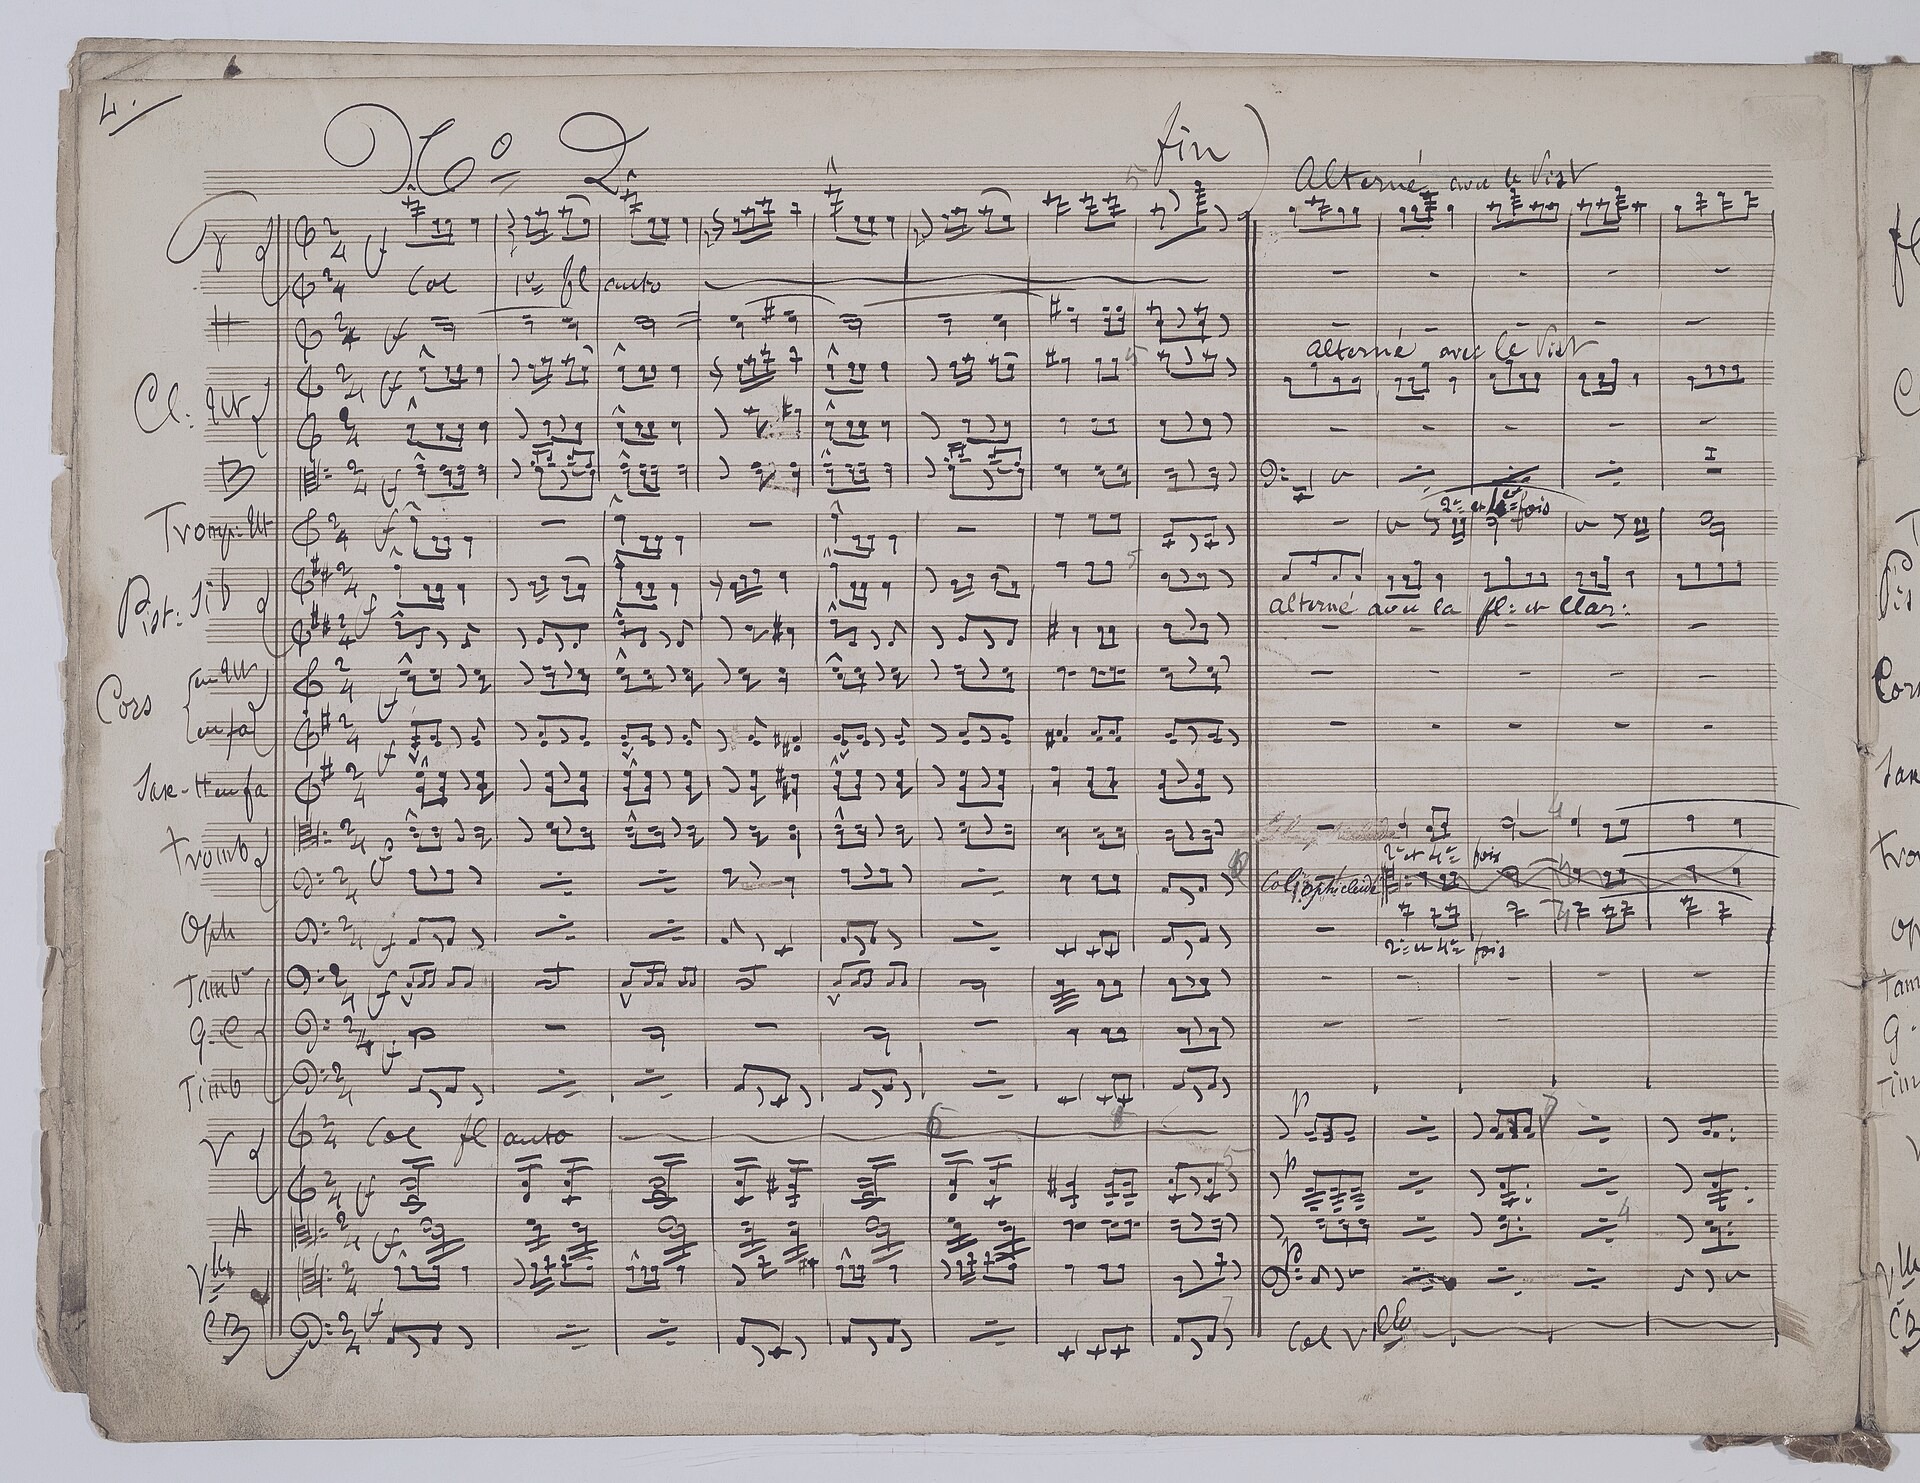 4.
No 2
fin
Alterné avec le Pist
Col 1re fl auto
H
alterné avec le Pist
Cl: Ut
B
2e et 4e fois
Tromp: Ut
Pist: Si b
alterné avec la fl: et Clar:
Cors en Ut
en fa
Sax-H en fa
Tromb
2e et 4e fois
Col ophicleide
Oph
2e et 4e fois
Tamb
G-C
Timb
V
Col fl auto
A
Vlle
CB
Col Vlle